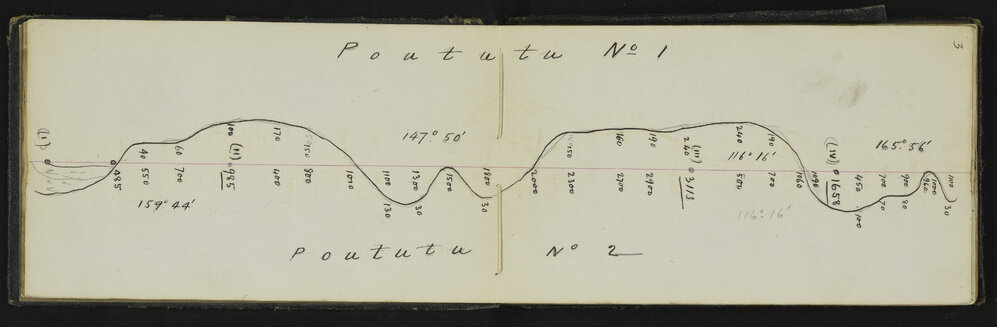 3
Poututu No 1
147° 50'
165° 56'
(I)
40
60
100
(II)
170
150
150
160
190
240
(III)
116° 16'
240
190
(IV)
485
550
700
985
400
800
1010
1100
1300
1500
1800
2000
2300
2700
2900
3113
500
700
1060
1090
1658
450
700
900
960
1000
1100
159° 44'
130
30
30
116° 16'
100
70
80
30
Poututu No 2